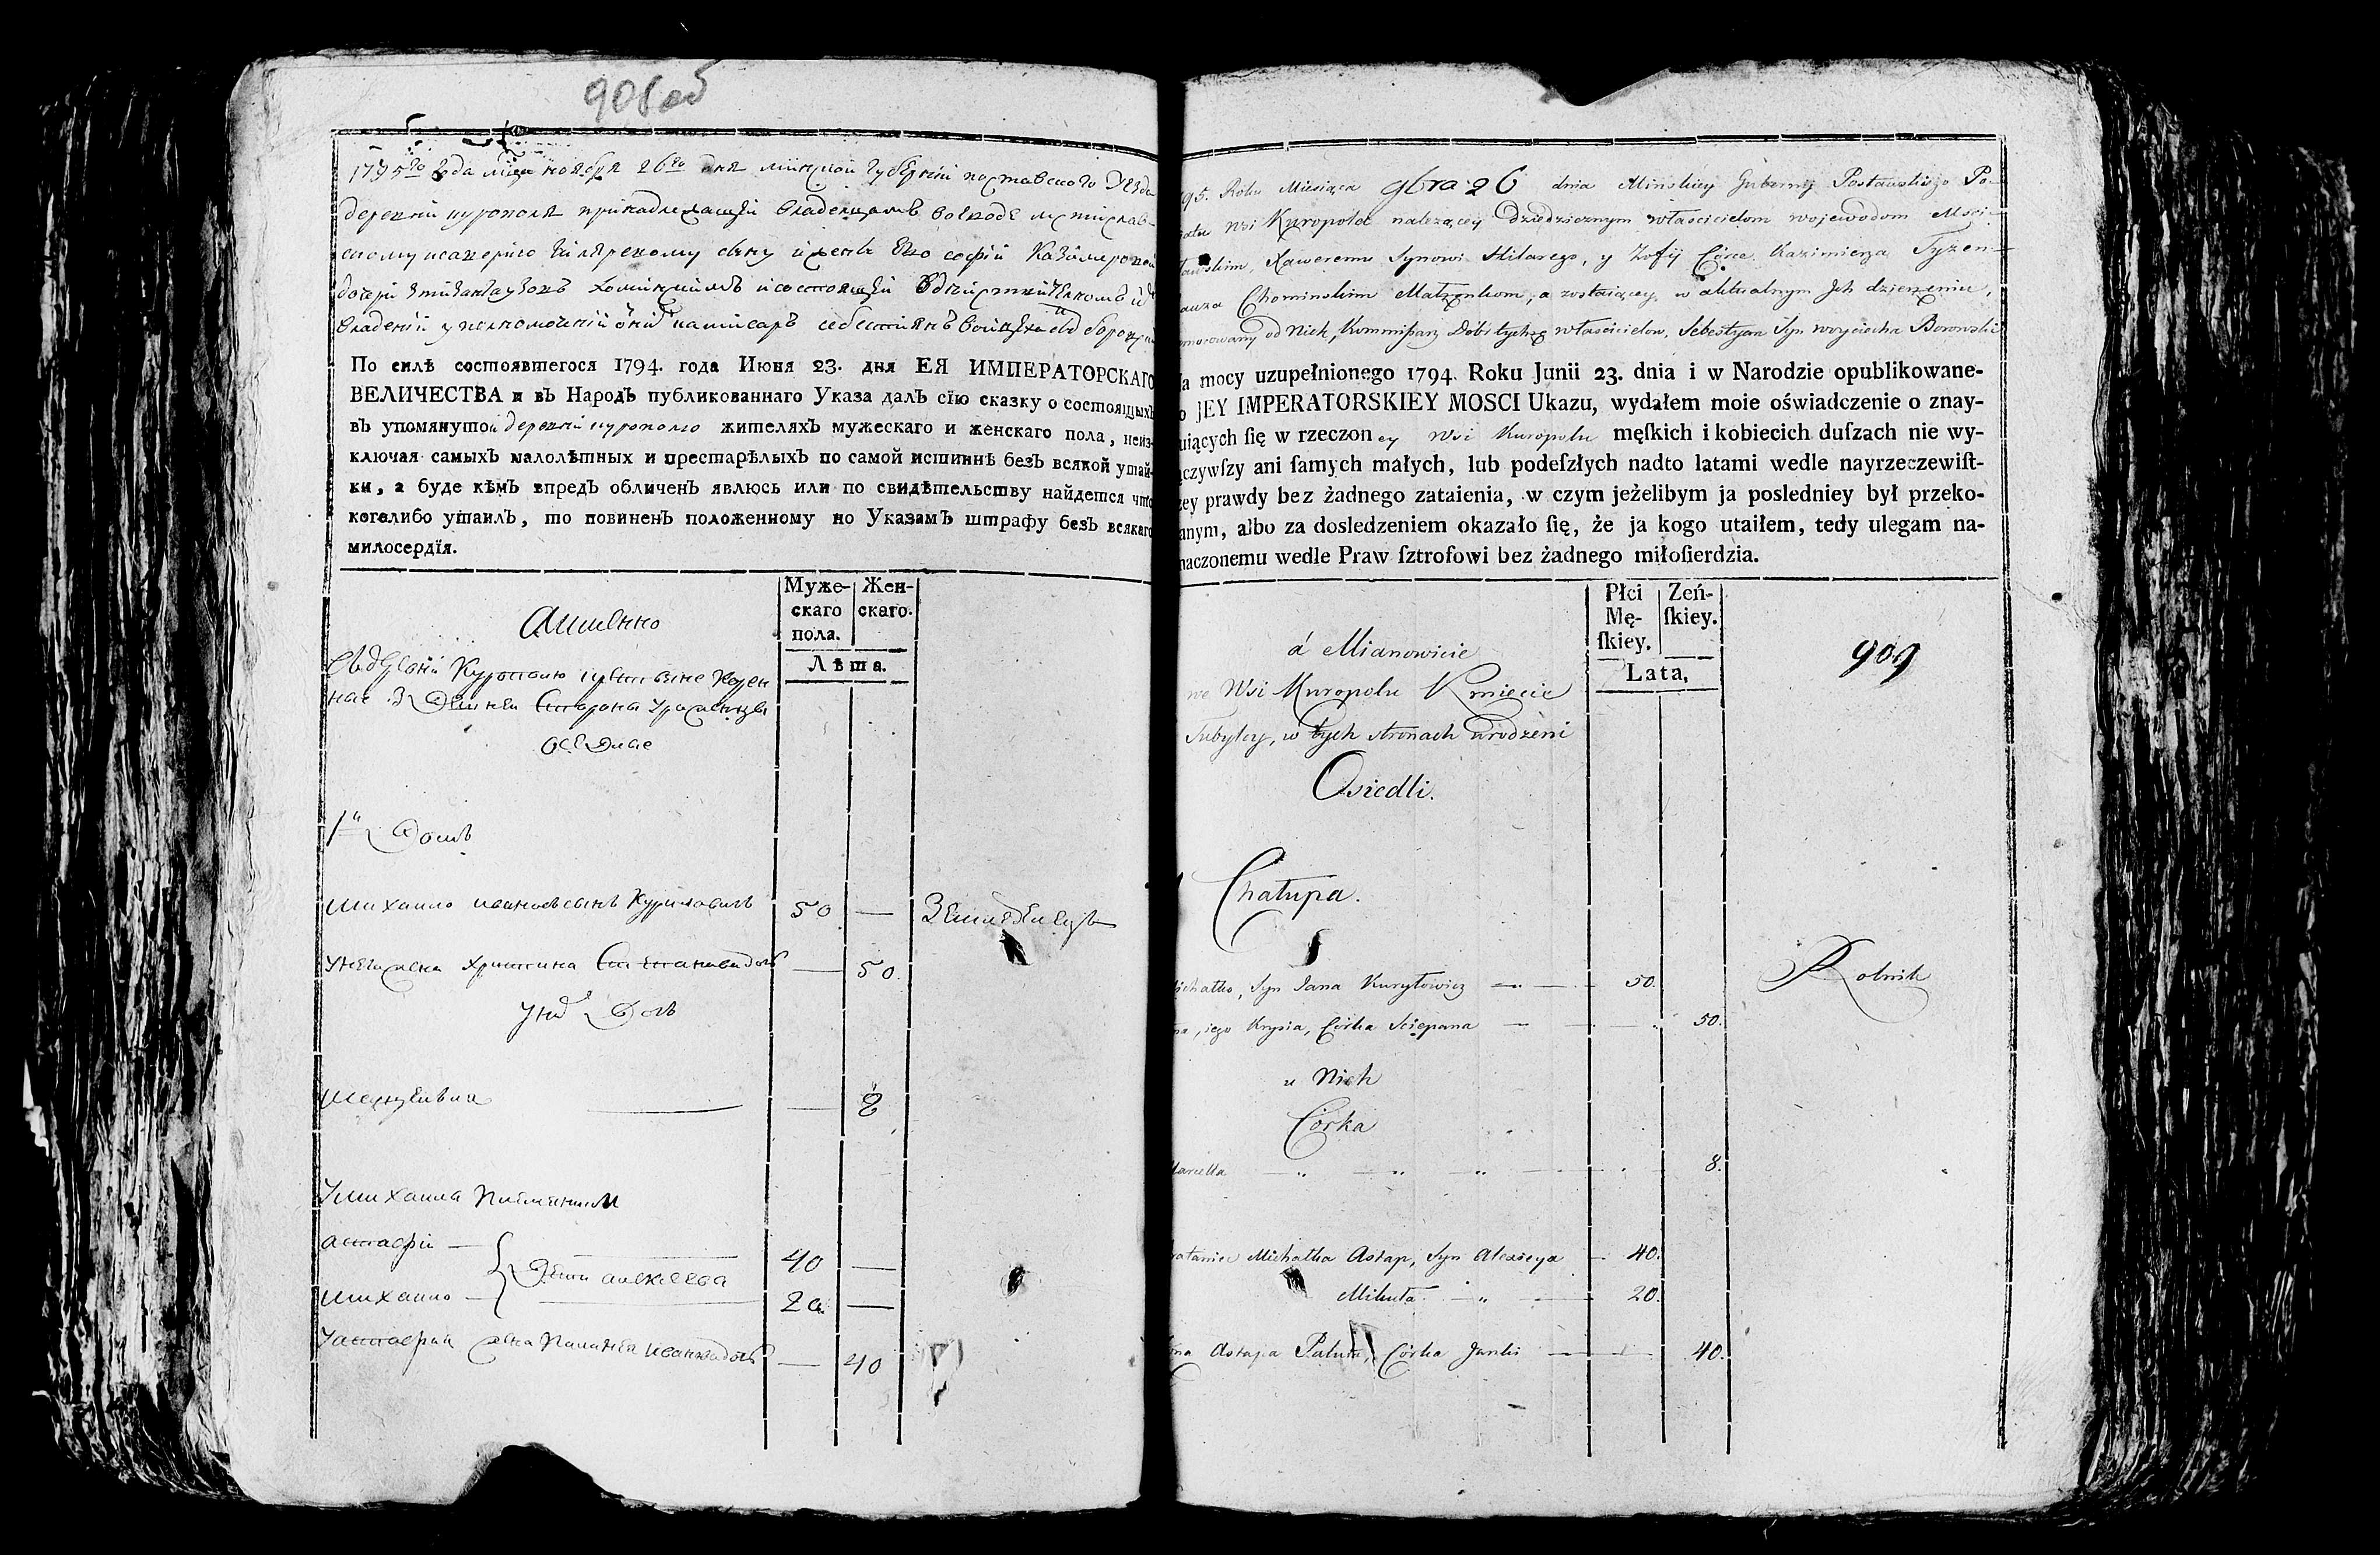 908 об
1795го года мца ноября 26го дня минской губернїй поставского уезда
деревнй курополя принадлежащей владельцамъ воеводе мстислав-
скому ксаверию гиляревому сыну и жене его софїй казимировой
дочери тизенгаузовъ хоминскимъ и состоящей в действительномъ их
владенїй уполномочнїй от них камисаръ себестиянъ войцеховъ боровски
По силѣ состоявшегося 1794. года Июня 23. дня ЕЯ ИМПЕРАТОРСКАГО
ВЕЛИЧЕСТВА и въ Народѣ публикованнаго Указа далъ сїю сказку о состоящихъ
въ упомянутой деревнй курополю жителяхъ мужескаго и женскаго пола, неиз-
ключая самыхъ малолѣтных и престарѣлыхъ по самой истиннѣ безъ всякой утай-
ки, а буде кѣмъ впредъ обличенъ явлюсь или по свидѣтельству найдется что
коголибо утаилъ, то повиненъ положенному по Указамъ штрафу безъ всякаго
милосердїя.
Муже-
скаго
пола.
Жен-
скаго.
Лѣта.
Аименно
Курополю крестьяне корен
ные Здешней стороны уроженцы
оседлые
1й Домъ
михаило ивановъ сынъ Куриловичъ 50 — Земледелецъ
У него жена христина степанова дочь — 50
У них Дочь
марцельля — 8
У михаила племянники
астафїй — 40 —
Дети алексеева
михаило — 20 —
У астафия жена Палагея иванова дочь — 40
795. Roku Miesiąca 9bra 26 dnia Minskiey Gubernij Postawskiego Po-
wiatu Wsi Kuropola należącey dziedzicznym właścicielom wojewodom Mści-
sławskim, Xaweremu Synowi Hilarego, y Zofij Córce Kazimierza Tyzen-
hauza Chominskim Małżonkom, a zostaiącey w aktualnym Jch dzierzeniu,
umocowany od Nich, Kommissarz Dobr tychże właścicielow, Sebestyan Syn woyciecha Borowski
Na mocy uzupełnionego 1794. Roku Junii 23. dnia i w Narodzie opublikowane-
go JEY IMPERATORSKIEY MOSCI Ukazu, wydałem moie oświadczenie o znay-
duiących ſię w rzeczoney Wsi Kuropolu męſkich i kobiecich duſzach nie wy-
łączywſzy ani ſamych małych, lub podeſzłych nadto latami wedle nayrzeczewiſt-
szey prawdy bez żadnego zataienia, w czym jeżelibym ja posledniey był przeko-
nanym, albo za dosledzeniem okazało ſię, że ja kogo utaiłem, tedy ulegam na-
znaczonemu wedle Praw ſztrofowi bez żadnego miłoſierdzia.
Płci
Mę-
ſkiey.
Zeń-
ſkiey.
Lata,
909
á Mianowicie
we Wsi Kuropolu Kmiecie
Tubylcy, w tych stronach urodzeni
Osiedli.
1 Chałupa.
Michałko, Syn Jana Kuryłowicz — 50. Rolnik
Żona, iego Krysia, Córka Sciepana — 50.
u Nich
Córka
Marcella — 8.
Bratanice Michałka Astap, Syn Alexieya — 40.
Mikuła — 20.
Żona Astapa Paluta, Córka Janki — 40.